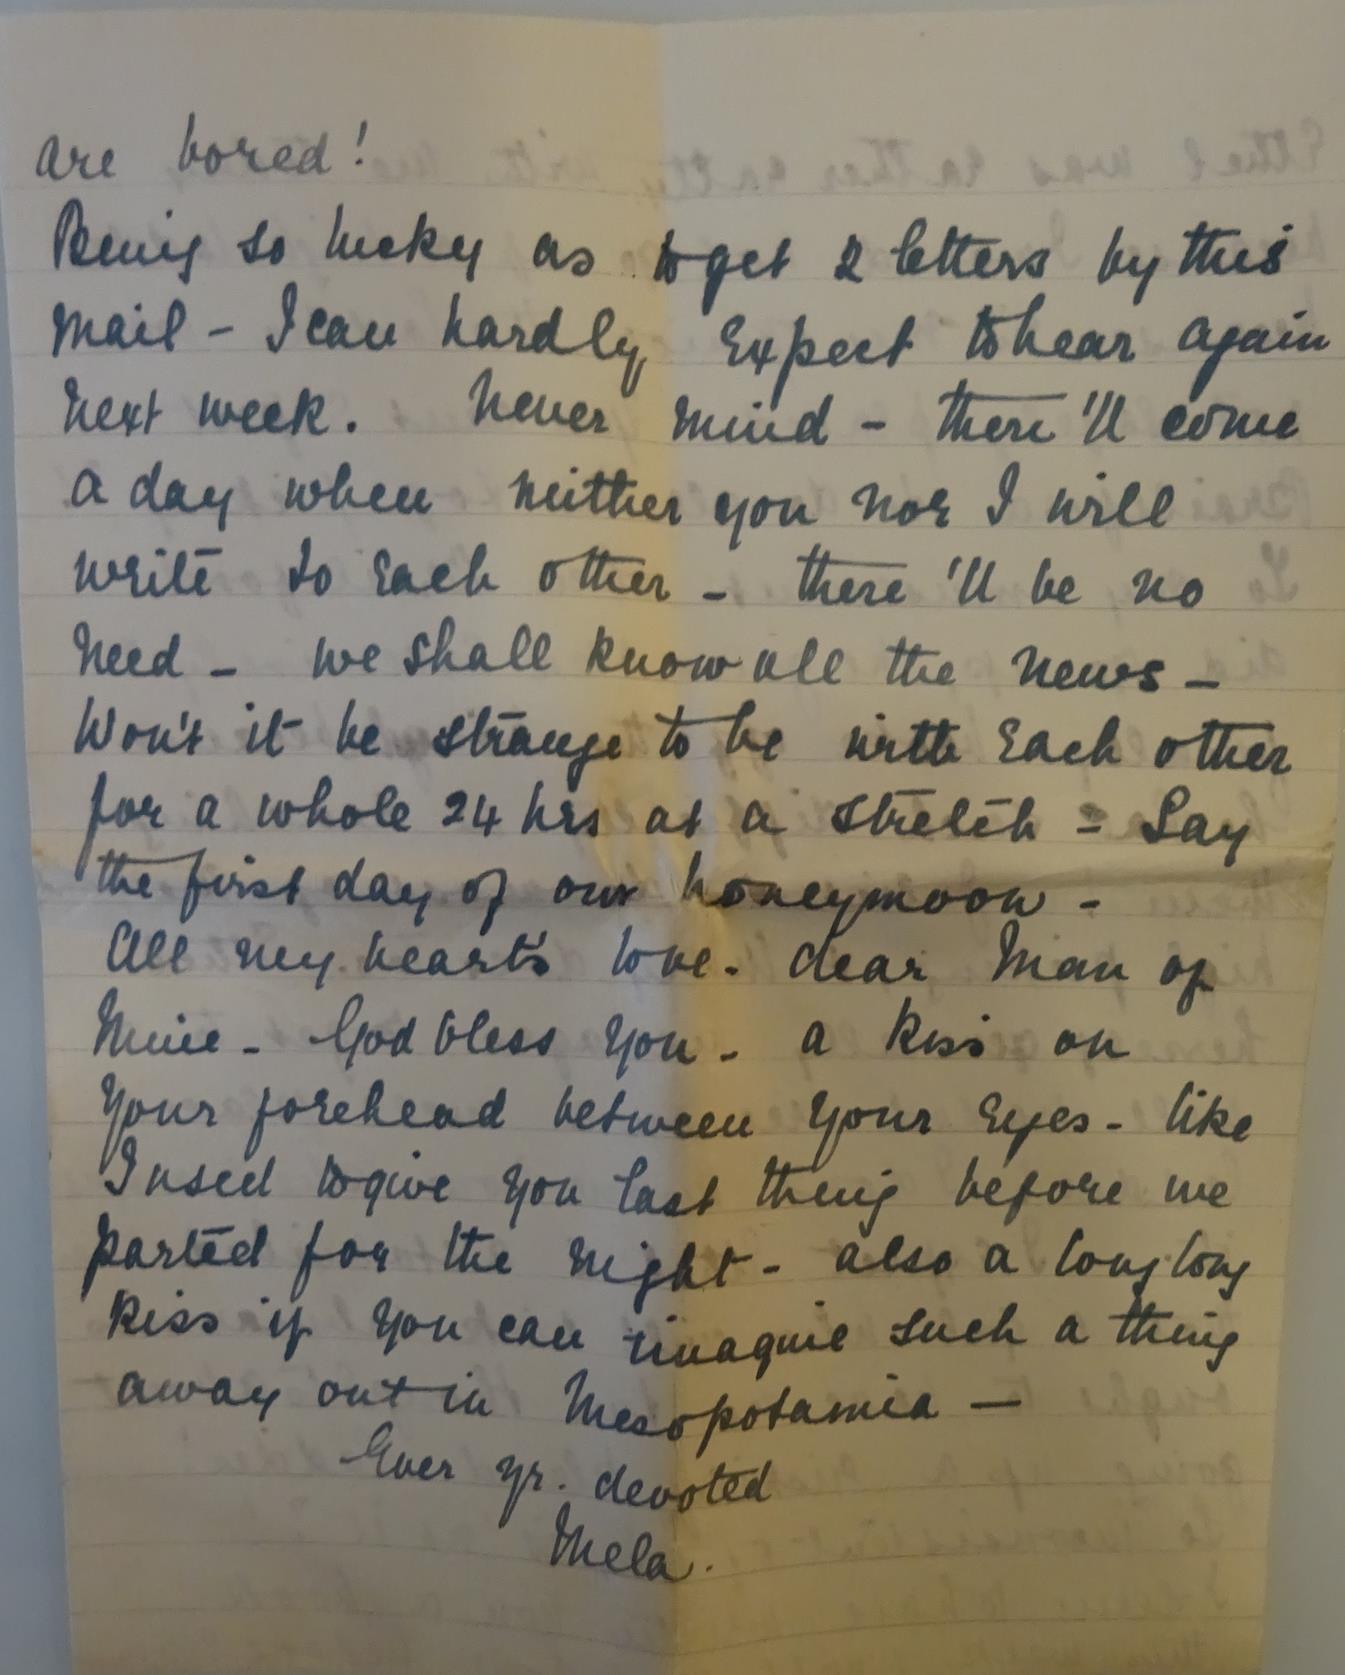 are bored!
Being so lucky as to get 2 letters by this
mail - I can hardly expect to hear again
next week. Never mind - there'll come
a day when neither you nor I will
write to each other - there'll be no
need - we shall know all the news -
Won't it be strange to be with each other
for a whole 24 hrs at a stretch - Say
the first day of our honeymoon -
All my heart's love - dear Man of
Mine - God bless you - a kiss on
your forehead between your eyes - like
I used to give you last thing before we
parted for the night - also a long long
kiss if you can imagine such a thing
away out in Mesopotamia -
Ever yr. devoted
Mela.